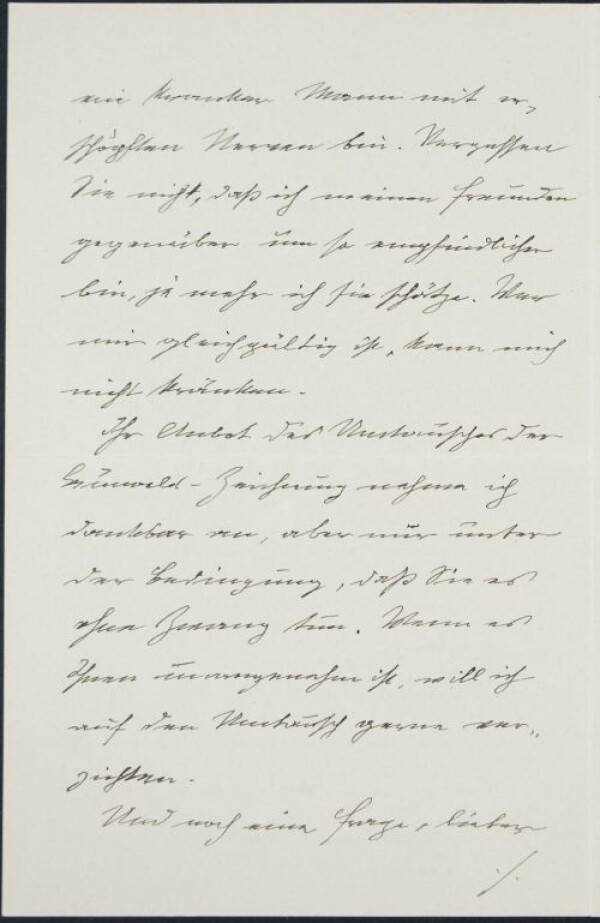 ein kranker Mann mit er-
schöpften Nerven bin. Vergessen
Sie nicht, daß ich meinen Freunden
gegenüber um so empfindlicher
bin, je mehr ich sie schätze. Wer
mir gleichgültig ist, kann mich
nicht kränken.
Ihr Anbot des Umtausches der
Zeichnung nehme ich
dankbar an, aber nur unter
der Bedingung, daß Sie es
ohne Zwang tun. Wenn es
Ihnen unangenehm ist, will ich
auf den Umtausch gerne ver-
zichten.
Und noch eine Frage, lieber
./.